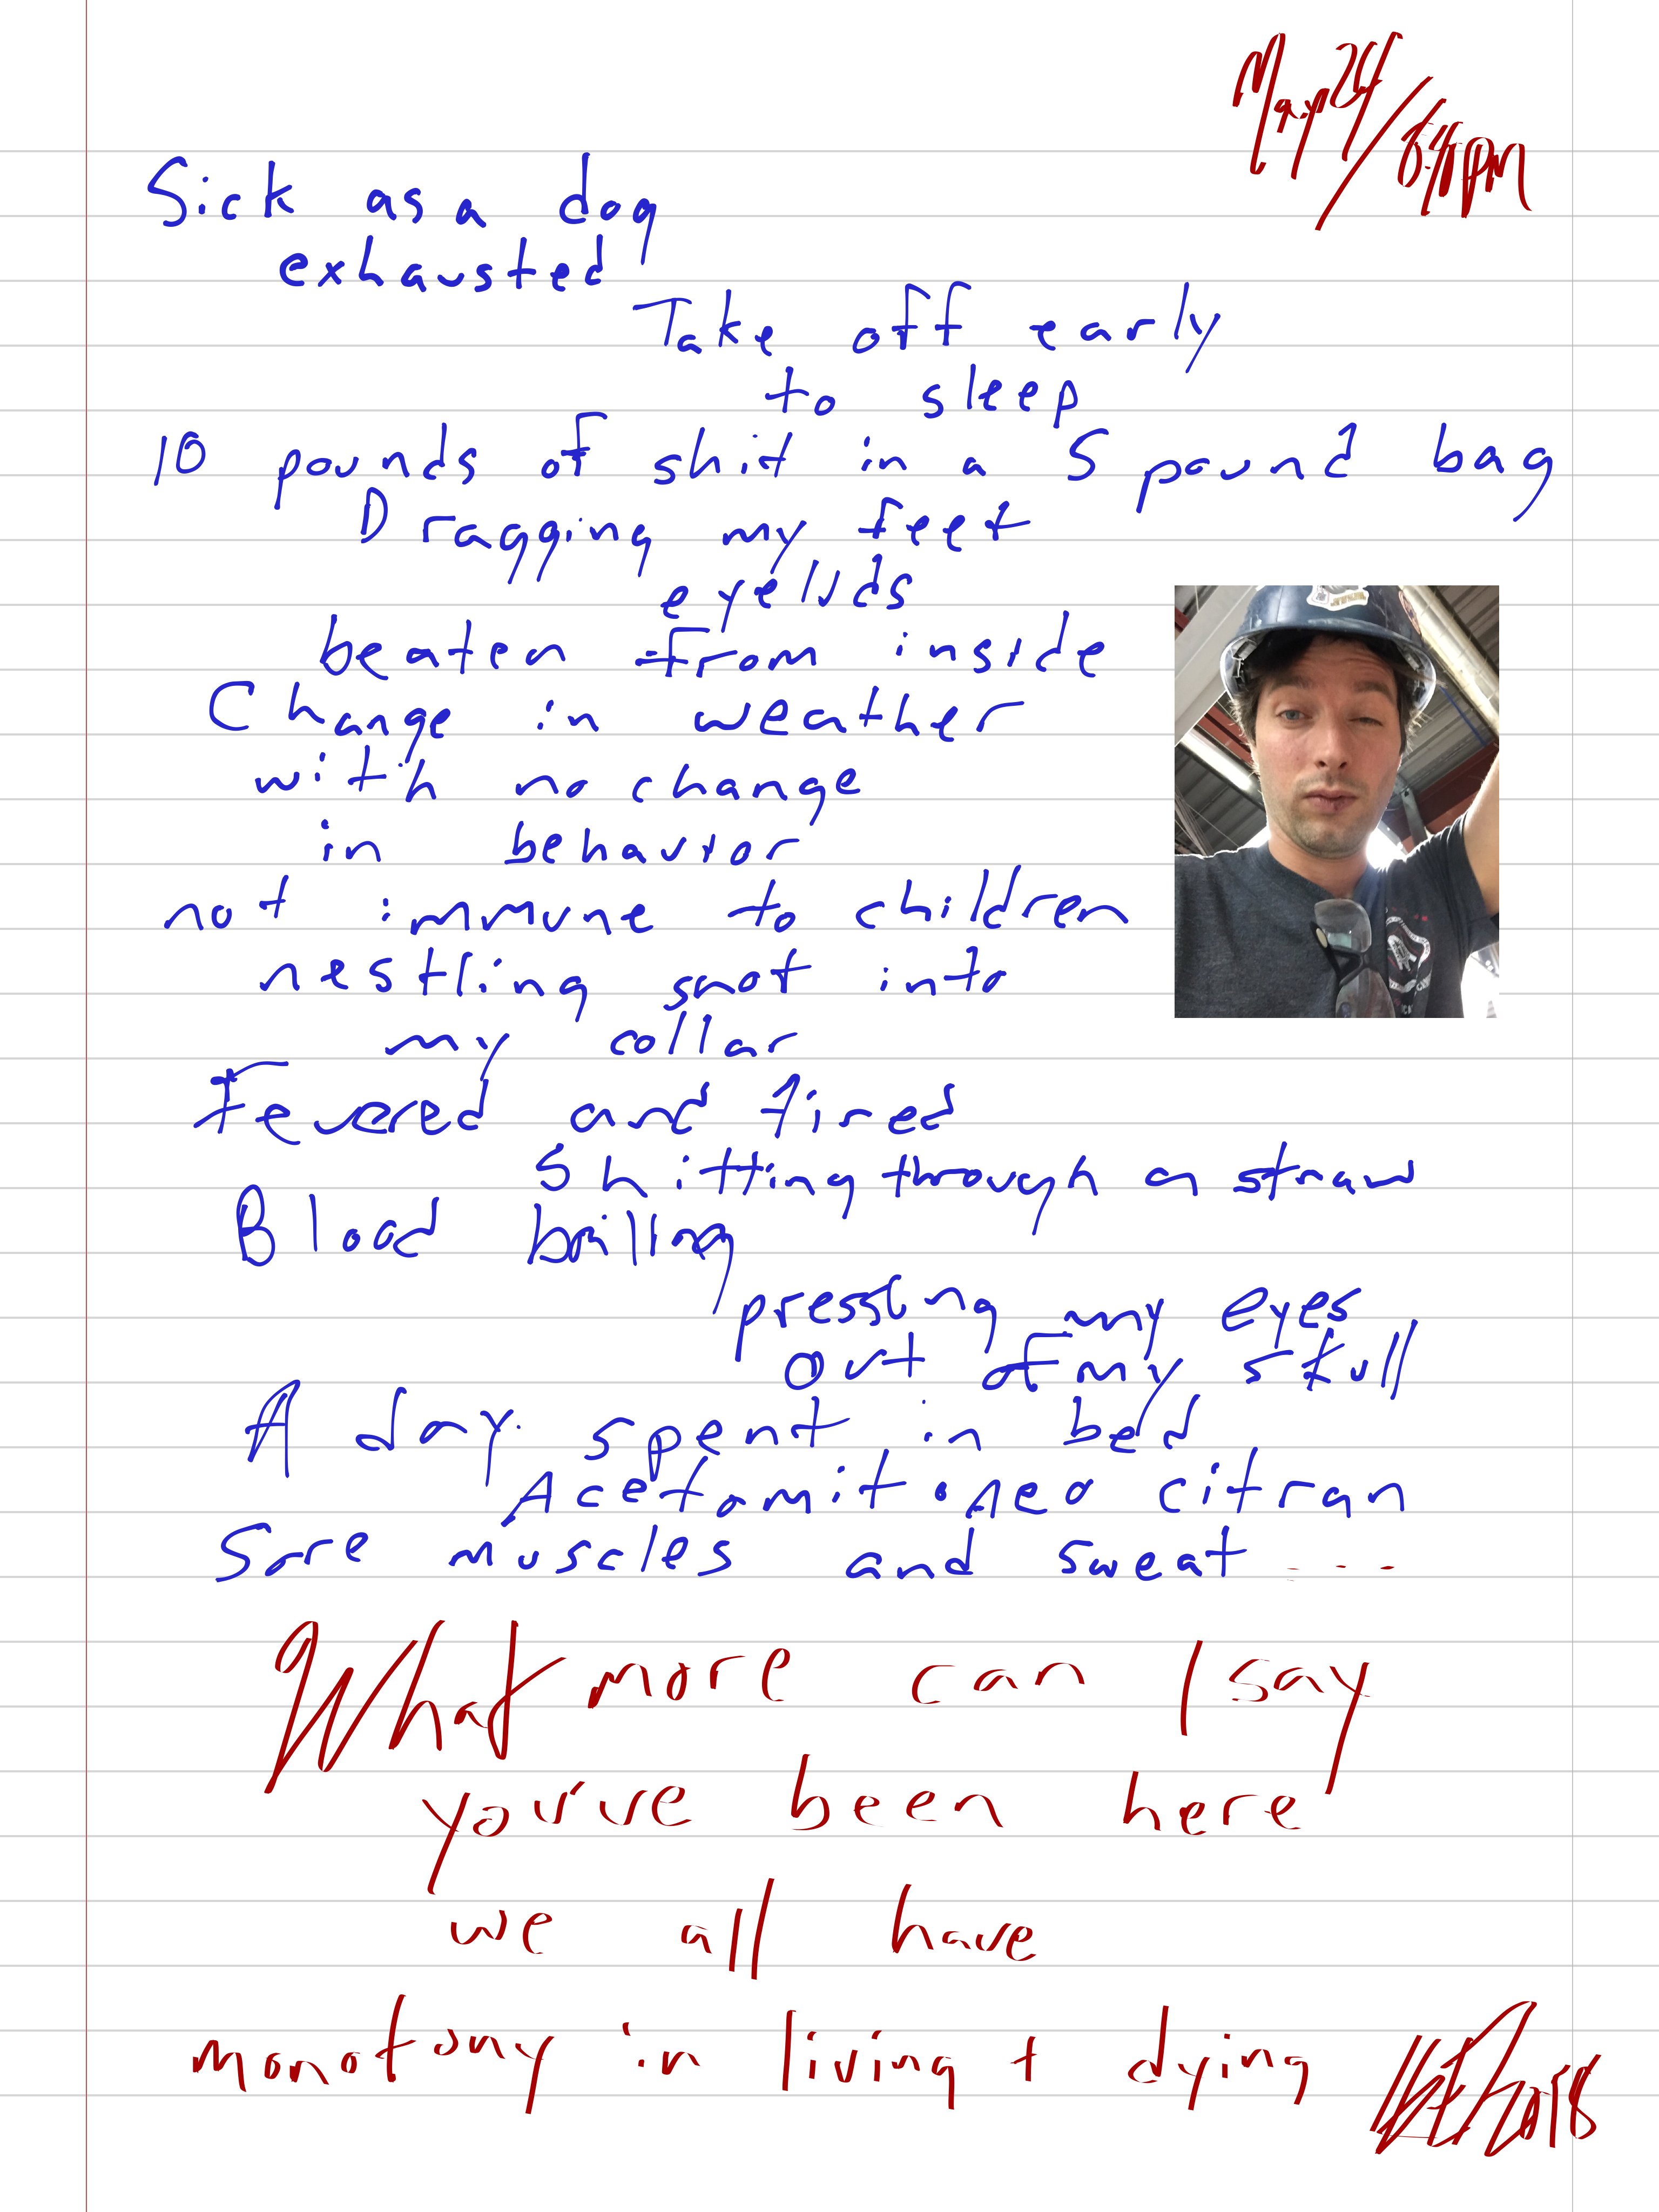 May 24/
Sick as a dog
exhausted
Take off early
to sleep
10 pounds of shit in a 5 pound bag
Dragging my feet
eyelids
beaten from inside
Change in weather
with no change
in behavior
not immune to children
nestling snot into
my collar
Fevered and tired
Shitting through a straw
Blood boiling
pressing my eyes
out of my skull
A day spent in bed
citran
Sore muscles and sweat....
What more can I say
you've been here
we all have
monotony in living + dying
2018